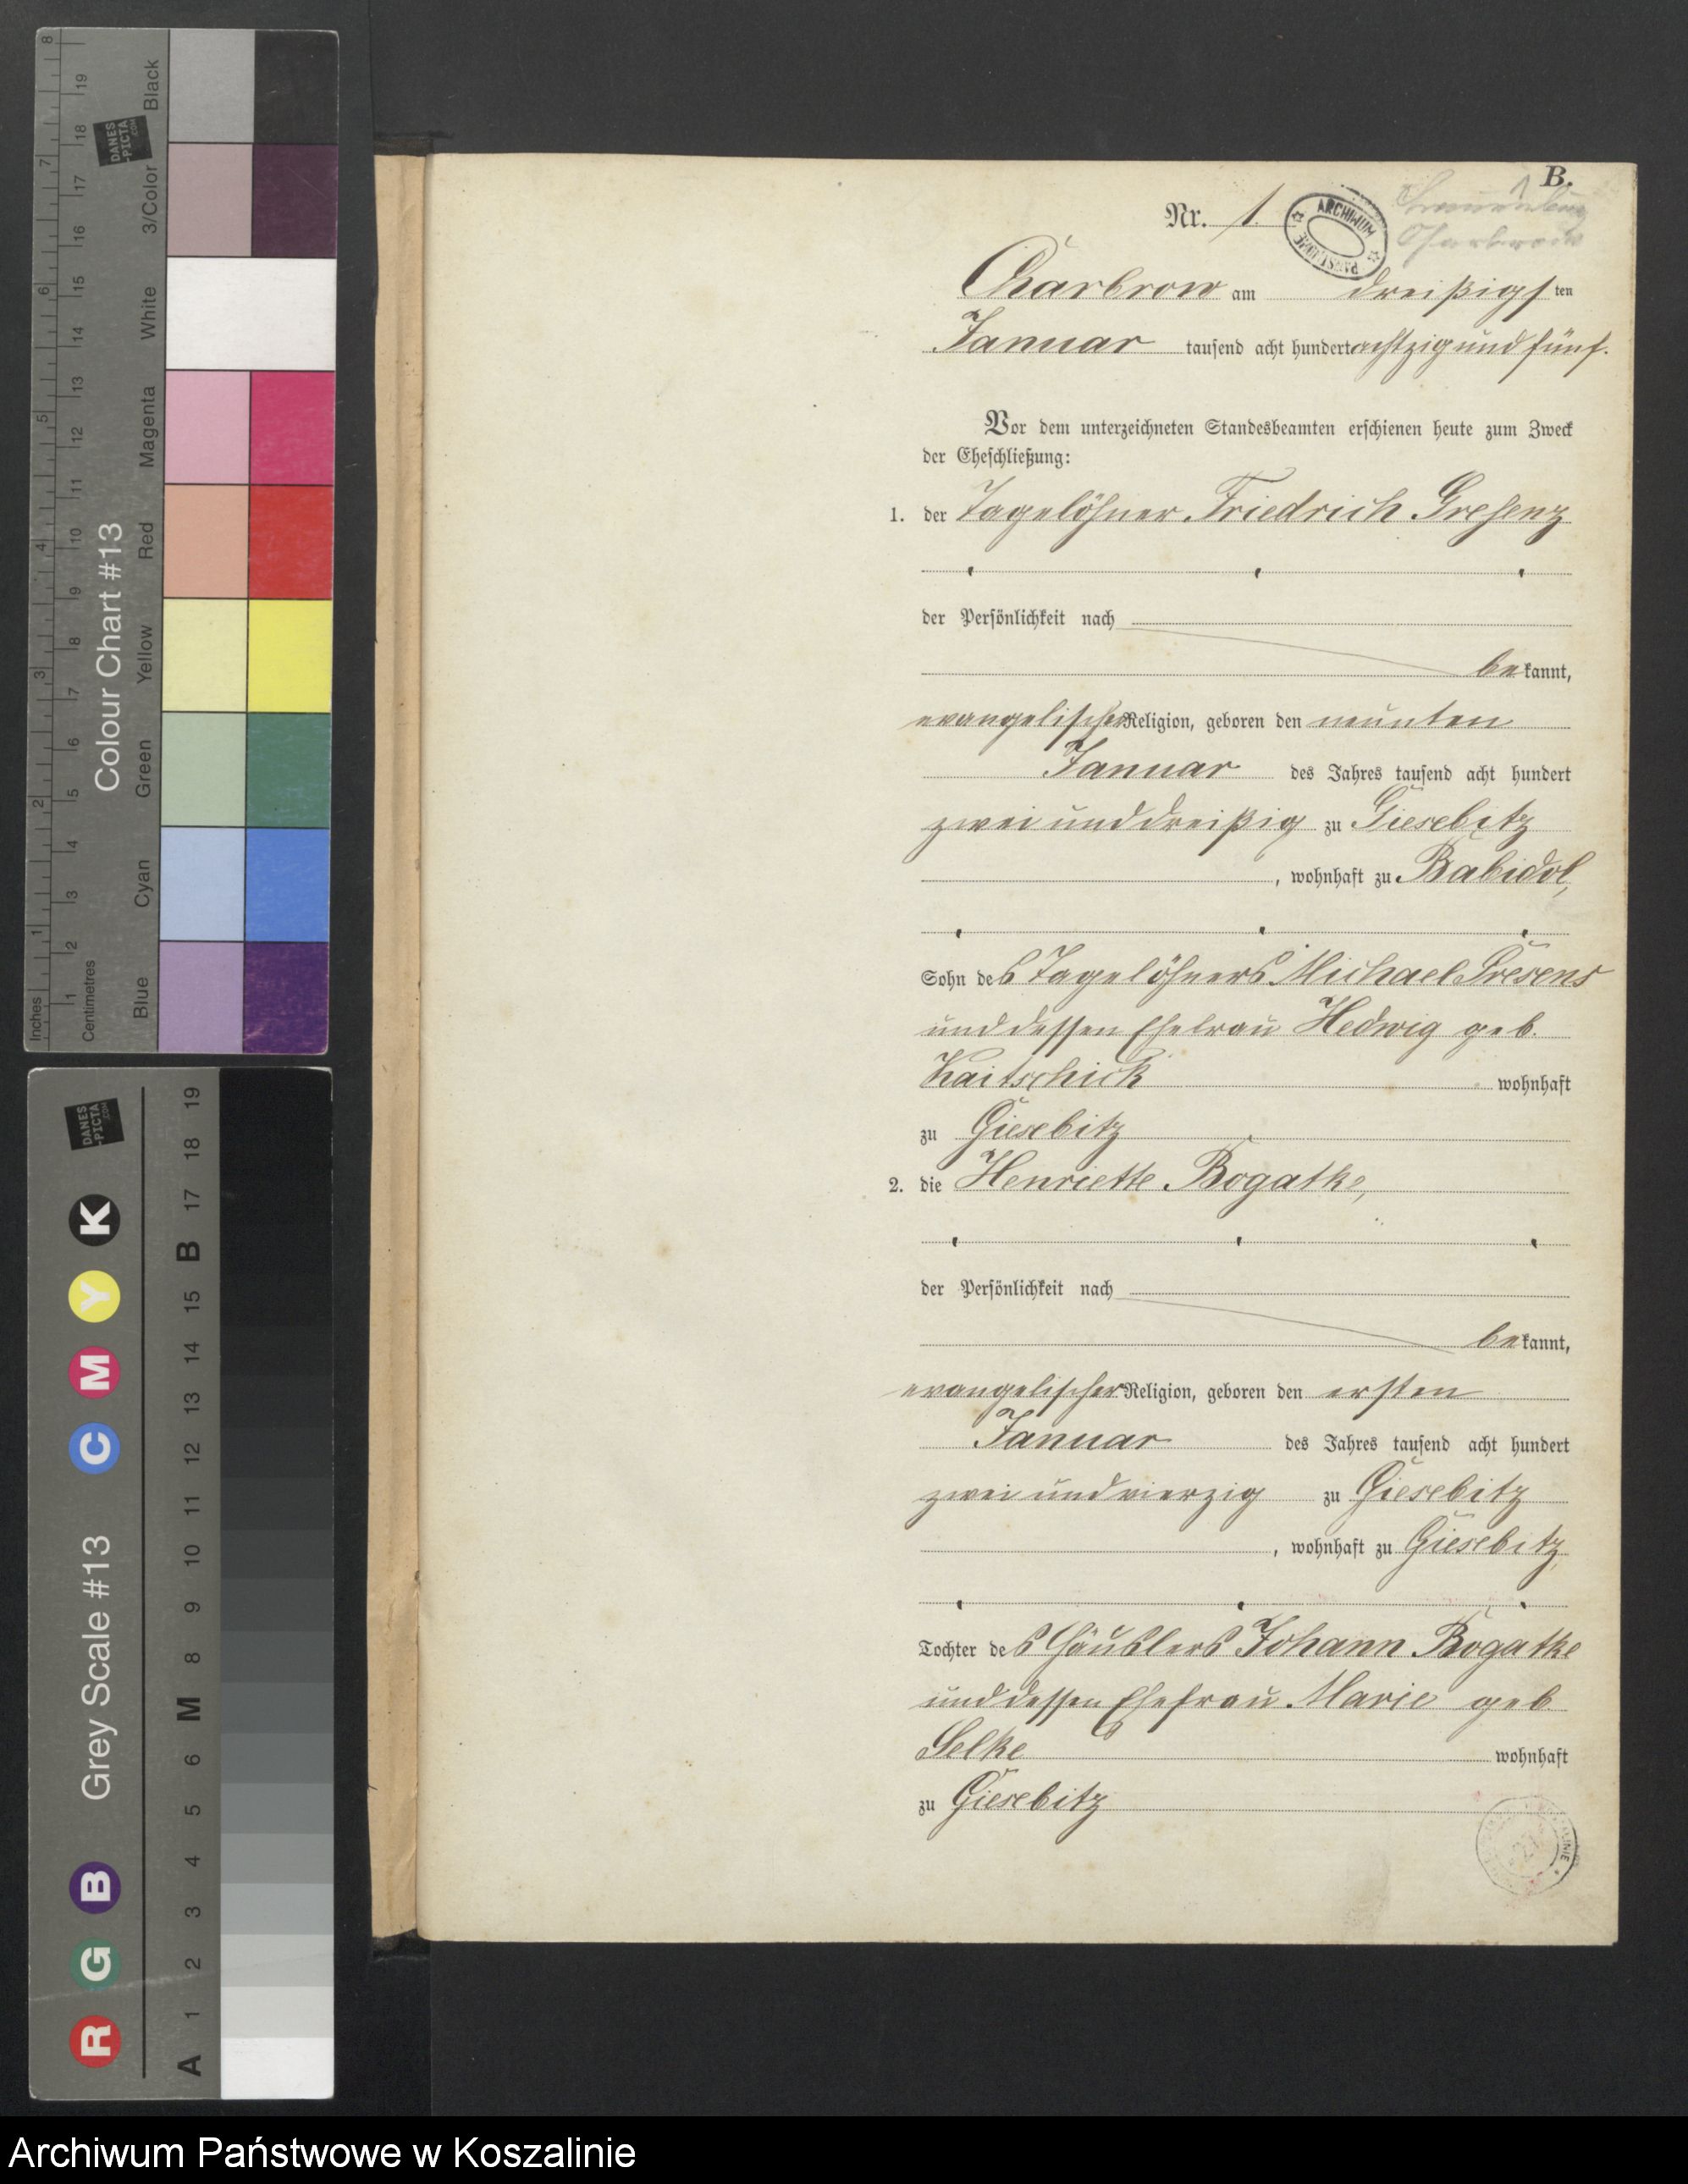 B.
Nr. 1.
ARCHIWUM PAŃSTWOWE
Charbrow
Charbrow am dreißigsten
Januar tausend acht hundert achtzig und fünf.
Vor dem unterzeichneten Standesbeamten erschienen heute zum Zweck
der Eheschließung:
1. der Tagelöhner Friedrich Gresenz
der Persönlichkeit nach
bekannt,
evangelischer Religion, geboren den neunten
Januar des Jahres tausend acht hundert
zwei und dreißig zu Giesebitz
, wohnhaft zu Babidol,
Sohn des Tagelöhners Michael Gresens
und dessen Ehefrau Hedwig geb.
Kaitschick wohnhaft
zu Giesebitz
2. die Henriette Bogatke,
der Persönlichkeit nach
bekannt,
evangelischer Religion, geboren den ersten
Januar des Jahres tausend acht hundert
zwei und vierzig zu Giesebitz
, wohnhaft zu Giesebitz,
Tochter des Häuslers Johann Bogatke
und dessen Ehefrau Marie geb.
Selke wohnhaft
zu Giesebitz
Colour Chart #13
Blue Cyan Green Yellow Red Magenta White 3/Color Black
Inches 1 2 3 4 5 6 7 8
Centimetres 1 2 3 4 5 6 7 8 9 10 11 12 13 14 15 16 17 18 19
DANES
-PICTA
.COM
Grey Scale #13
R G B C M Y K
A 1 2 3 4 5 6 M 8 9 10 11 12 13 14 15 B 17 18 19
DANES
-PICTA
.COM
Archiwum Państwowe w Koszalinie